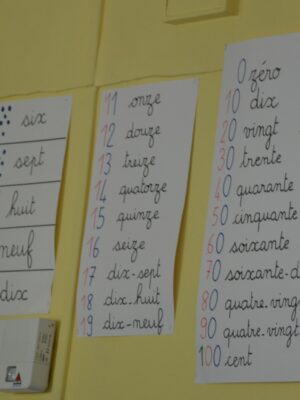 six
sept
huit
neuf
dix
11 onze
12 douze
13 treize
14 quatorze
15 quinze
16 seize
17 dix-sept
18 dix-huit
19 dix-neuf
0 zéro
10 dix
20 vingt
30 trente
40 quarante
50 cinquante
60 soixante
70 soixante-d
80 quatre-ving
90 quatre-vingt
100 cent